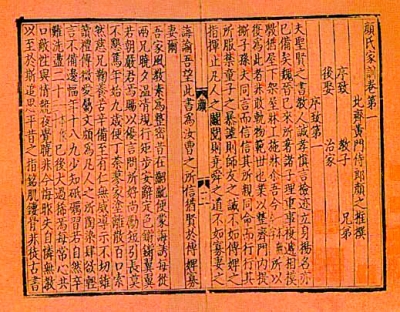 顏氏家訓卷第一
北齊黃門侍郎顏之推撰
序致 教子 兄弟
後娶 治家
序致第一
夫聖賢之書教人誠孝慎言檢迹立身揚名亦
已備矣魏晉已來所著諸子理重事複遞相模
斆猶屋下架屋牀上施牀爾吾今所以
復為此者非敢軌物範世也業以整齊門內提
撕子孫夫同言而信信其所親同命而行行其
所服禁童子之暴謔則師友之誡不如傅婢之
指揮止凡人之鬬鬩則堯舜之道不如寡妻之
誨諭吾望此書為汝曹之所信猶賢於傅婢寡
妻爾
吾家風教素為整密昔在齠齓便蒙誨誘每從
兩兄曉夕溫凊規行矩步安辭定色鏘鏘翼翼
若朝嚴君焉賜以優言問所好尚勵短引長莫
不懇篤年始九歲便丁荼蓼家塗離散百口索
然慈兄鞠養苦辛備至有仁無威導示不切雖
讀禮傳微愛屬文頗為凡人之所陶染肆欲輕
言不備邊幅年十八九少知砥礪習若自然卒
難洗盪二十已後大過稀焉每常心共
口敵性與情競夜覺曉非今悔昨失自憐無教
以至於斯追思平昔之指銘肌鏤骨非徒古書